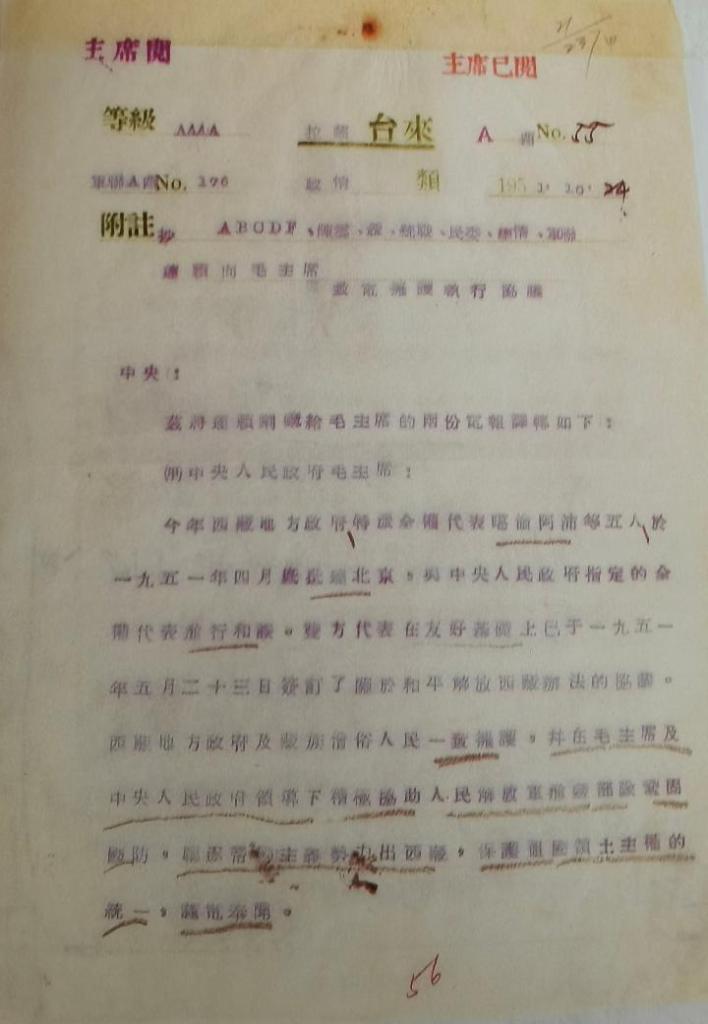 主席閱 主席已閱 21/23/10
等級 AAAA 拉薩 台來 A 密 No. 55
軍聯A密 No. 276 政情 類 1951.10.24
附註 抄 ABCDF、陳雲、統戰、民委、軍聯
達賴向毛主席
致電擁護執行協議
中央：
茲將達賴剛纔給毛主席的兩份電報譯轉如下：
中央人民政府毛主席：
今年西藏地方政府特派全權代表噶倫阿沛等五人於
一九五一年四月底抵達北京，與中央人民政府指定的全
權代表進行和談。雙方代表在友好基礎上已于一九五一
年五月二十三日簽訂了關於和平解放西藏辦法的協議。
西藏地方政府及藏族僧俗人民一致擁護，并在毛主席及
中央人民政府領導下積極協助人民解放軍進藏部隊鞏固
國防，驅逐帝國主義勢力出西藏，保護祖國領土主權的
統一，謹電奉聞。
56